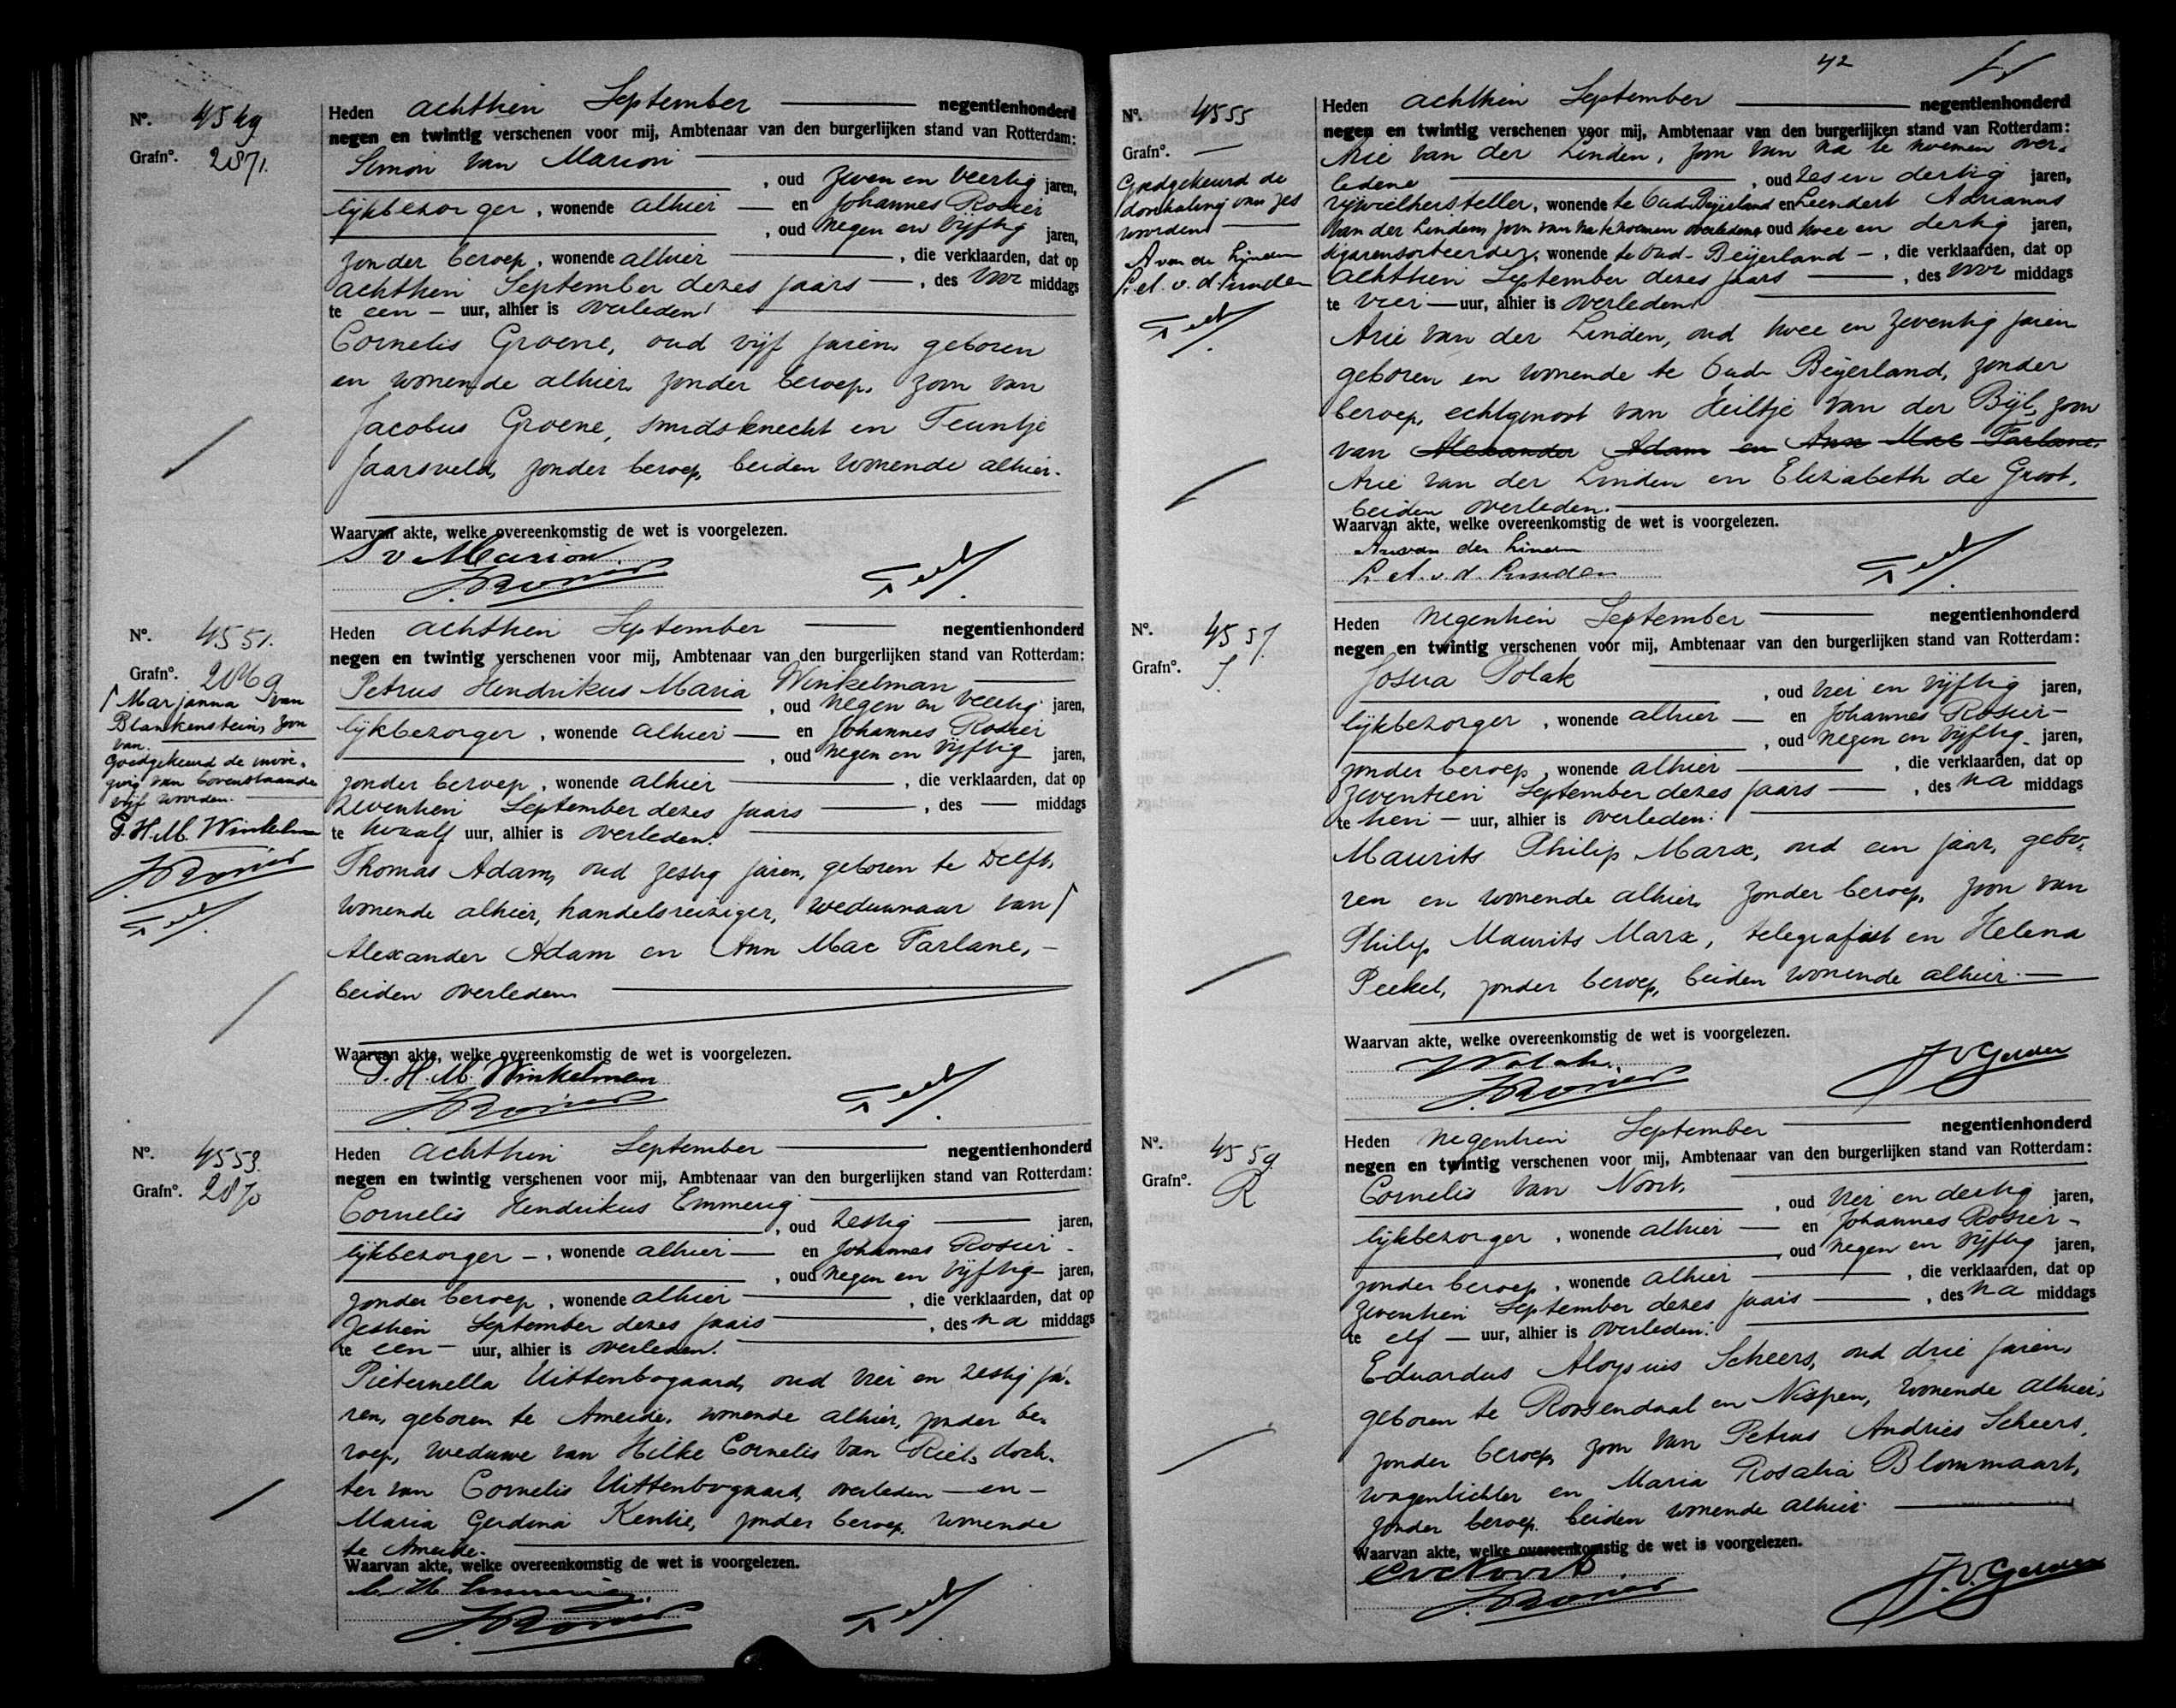 Nº. 4549
Grafnº. 2871.
Heden achttien September negentienhonderd
negen en twintig verschenen voor mij, Ambtenaar van den burgerlijken stand van Rotterdam:
Simon van Marion
, oud zeven en veertig jaren,
lijkbezorger, wonende alhier — en Johannes Rosier
, oud negen en vijftig jaren,
zonder beroep, wonende alhier , die verklaarden, dat op
achttien September dezes jaars —, des voor middags
te een — uur, alhier is overleden:
Cornelis Groene, oud vijf jaren, geboren
en wonende alhier, zonder beroep, zoon van
Jacobus Groene, smidsknecht en Teuntje
Jaarsveld, zonder beroep, beiden wonende alhier.
Waarvan akte, welke overeenkomstig de wet is voorgelezen.
S v Marion
J. Rosier
Nº. 4551.
Grafnº. 2869
Marjanna van
Blankenstein, zoon
van.
Goedgekeurd de invoe-
ging van bovenstaande
vijf woorden.
P. H. M. Winkelman
J. Rosier
Heden achttien September negentienhonderd
negen en twintig verschenen voor mij, Ambtenaar van den burgerlijken stand van Rotterdam:
Petrus Hendrikus Maria Winkelman
, oud negen en veertig jaren,
lijkbezorger, wonende alhier — en Johannes Rosier
, oud negen en vijftig jaren,
zonder beroep, wonende alhier , die verklaarden, dat op
zeventien September dezes jaars , des — middags
te twaalf uur, alhier is overleden:
Thomas Adam, oud zestig jaren, geboren te Delft,
wonende alhier, handelsreiziger, weduwnaar van
Alexander Adam en Ann Mac Farlane, —
beiden overleden.
Waarvan akte, welke overeenkomstig de wet is voorgelezen.
P. H. M. Winkelman
J. Rosier
Nº. 4553.
Grafnº. 2870
Heden achttien September negentienhonderd
negen en twintig verschenen voor mij, Ambtenaar van den burgerlijken stand van Rotterdam:
Cornelis Hendrikus Emmerig
, oud zestig jaren,
lijkbezorger —, wonende alhier — en Johannes Rosier
, oud negen en vijftig jaren,
zonder beroep, wonende alhier , die verklaarden, dat op
zestien September dezes jaars , des na middags
te een — uur, alhier is overleden:
Pieternella Uittenbogaard, oud vier en zestig ja-
ren, geboren te Ameide, wonende alhier, zonder be-
roep, weduwe van Hilke Cornelis van Riel, doch-
ter van Cornelis Uittenbogaard, overleden — en —
Maria Gerdina Kentie, zonder beroep, wonende
te Ameide.
Waarvan akte, welke overeenkomstig de wet is voorgelezen.
C. H. Emmerig
J. Rosier
42
Nº. 4555
Grafnº. —
Goedgekeurd de
doorhaling van zes
woorden
A van der Linden
L. A. v. d. Linden
Heden achttien September negentienhonderd
negen en twintig verschenen voor mij, Ambtenaar van den burgerlijken stand van Rotterdam:
Arie van der Linden, zoon van na te noemen over-
ledene , oud zes en dertig jaren,
rijwielhersteller, wonende te Oud-Beijerland en Leendert Adrianus
van der Linden, zoon van na te noemen overledene, oud twee en dertig jaren,
sigarensorteerder, wonende te Oud-Beijerland —, die verklaarden, dat op
achttien September dezes jaars , des voor middags
te vier — uur, alhier is overleden:
Arie van der Linden, oud twee en zeventig jaren
geboren en wonende te Oud-Beijerland, zonder
beroep, echtgenoot van Heiltje van der Bijl, zoon
van Alexander Adam en Ann Mac Farlane.
Arie van der Linden en Elizabeth de Groot,
beiden overleden.
Waarvan akte, welke overeenkomstig de wet is voorgelezen.
Arie van der Linden
L. A. v. d. Linden
Nº. 4557.
Grafnº. I.
Heden negentien September negentienhonderd
negen en twintig verschenen voor mij, Ambtenaar van den burgerlijken stand van Rotterdam:
Josua Polak
, oud vier en vijftig jaren,
lijkbezorger, wonende alhier — en Johannes Rosier —
, oud negen en vijftig jaren,
zonder beroep, wonende alhier , die verklaarden, dat op
zeventien September dezes jaars —, des na middags
te tien — uur, alhier is overleden:
Maurits Philip Marx, oud een jaar, gebo-
ren en wonende alhier, zonder beroep, zoon van
Philip Maurits Marx, telegrafist en Helena
Peekel, zonder beroep, beiden wonende alhier.
Waarvan akte, welke overeenkomstig de wet is voorgelezen.
J Polak
J. Rosier
J. V. Gelder
Nº. 4559
Grafnº. R
Heden negentien September negentienhonderd
negen en twintig verschenen voor mij, Ambtenaar van den burgerlijken stand van Rotterdam:
Cornelis van Noort,
, oud vier en dertig jaren,
lijkbezorger, wonende alhier — en Johannes Rosier —
, oud negen en vijftig jaren,
zonder beroep, wonende alhier , die verklaarden, dat op
zeventien September dezes jaars , des na middags
te elf — uur, alhier is overleden:
Eduardus Aloysius Scheers, oud drie jaren,
geboren te Roosendaal en Nispen, wonende alhier,
zonder beroep, zoon van Petrus Andries Scheers,
wagenlichter en Maria Rosalia Blommaart,
zonder beroep, beiden wonende alhier.
Waarvan akte, welke overeenkomstig de wet is voorgelezen.
C v Noort
J. Rosier
J. V. Gelder